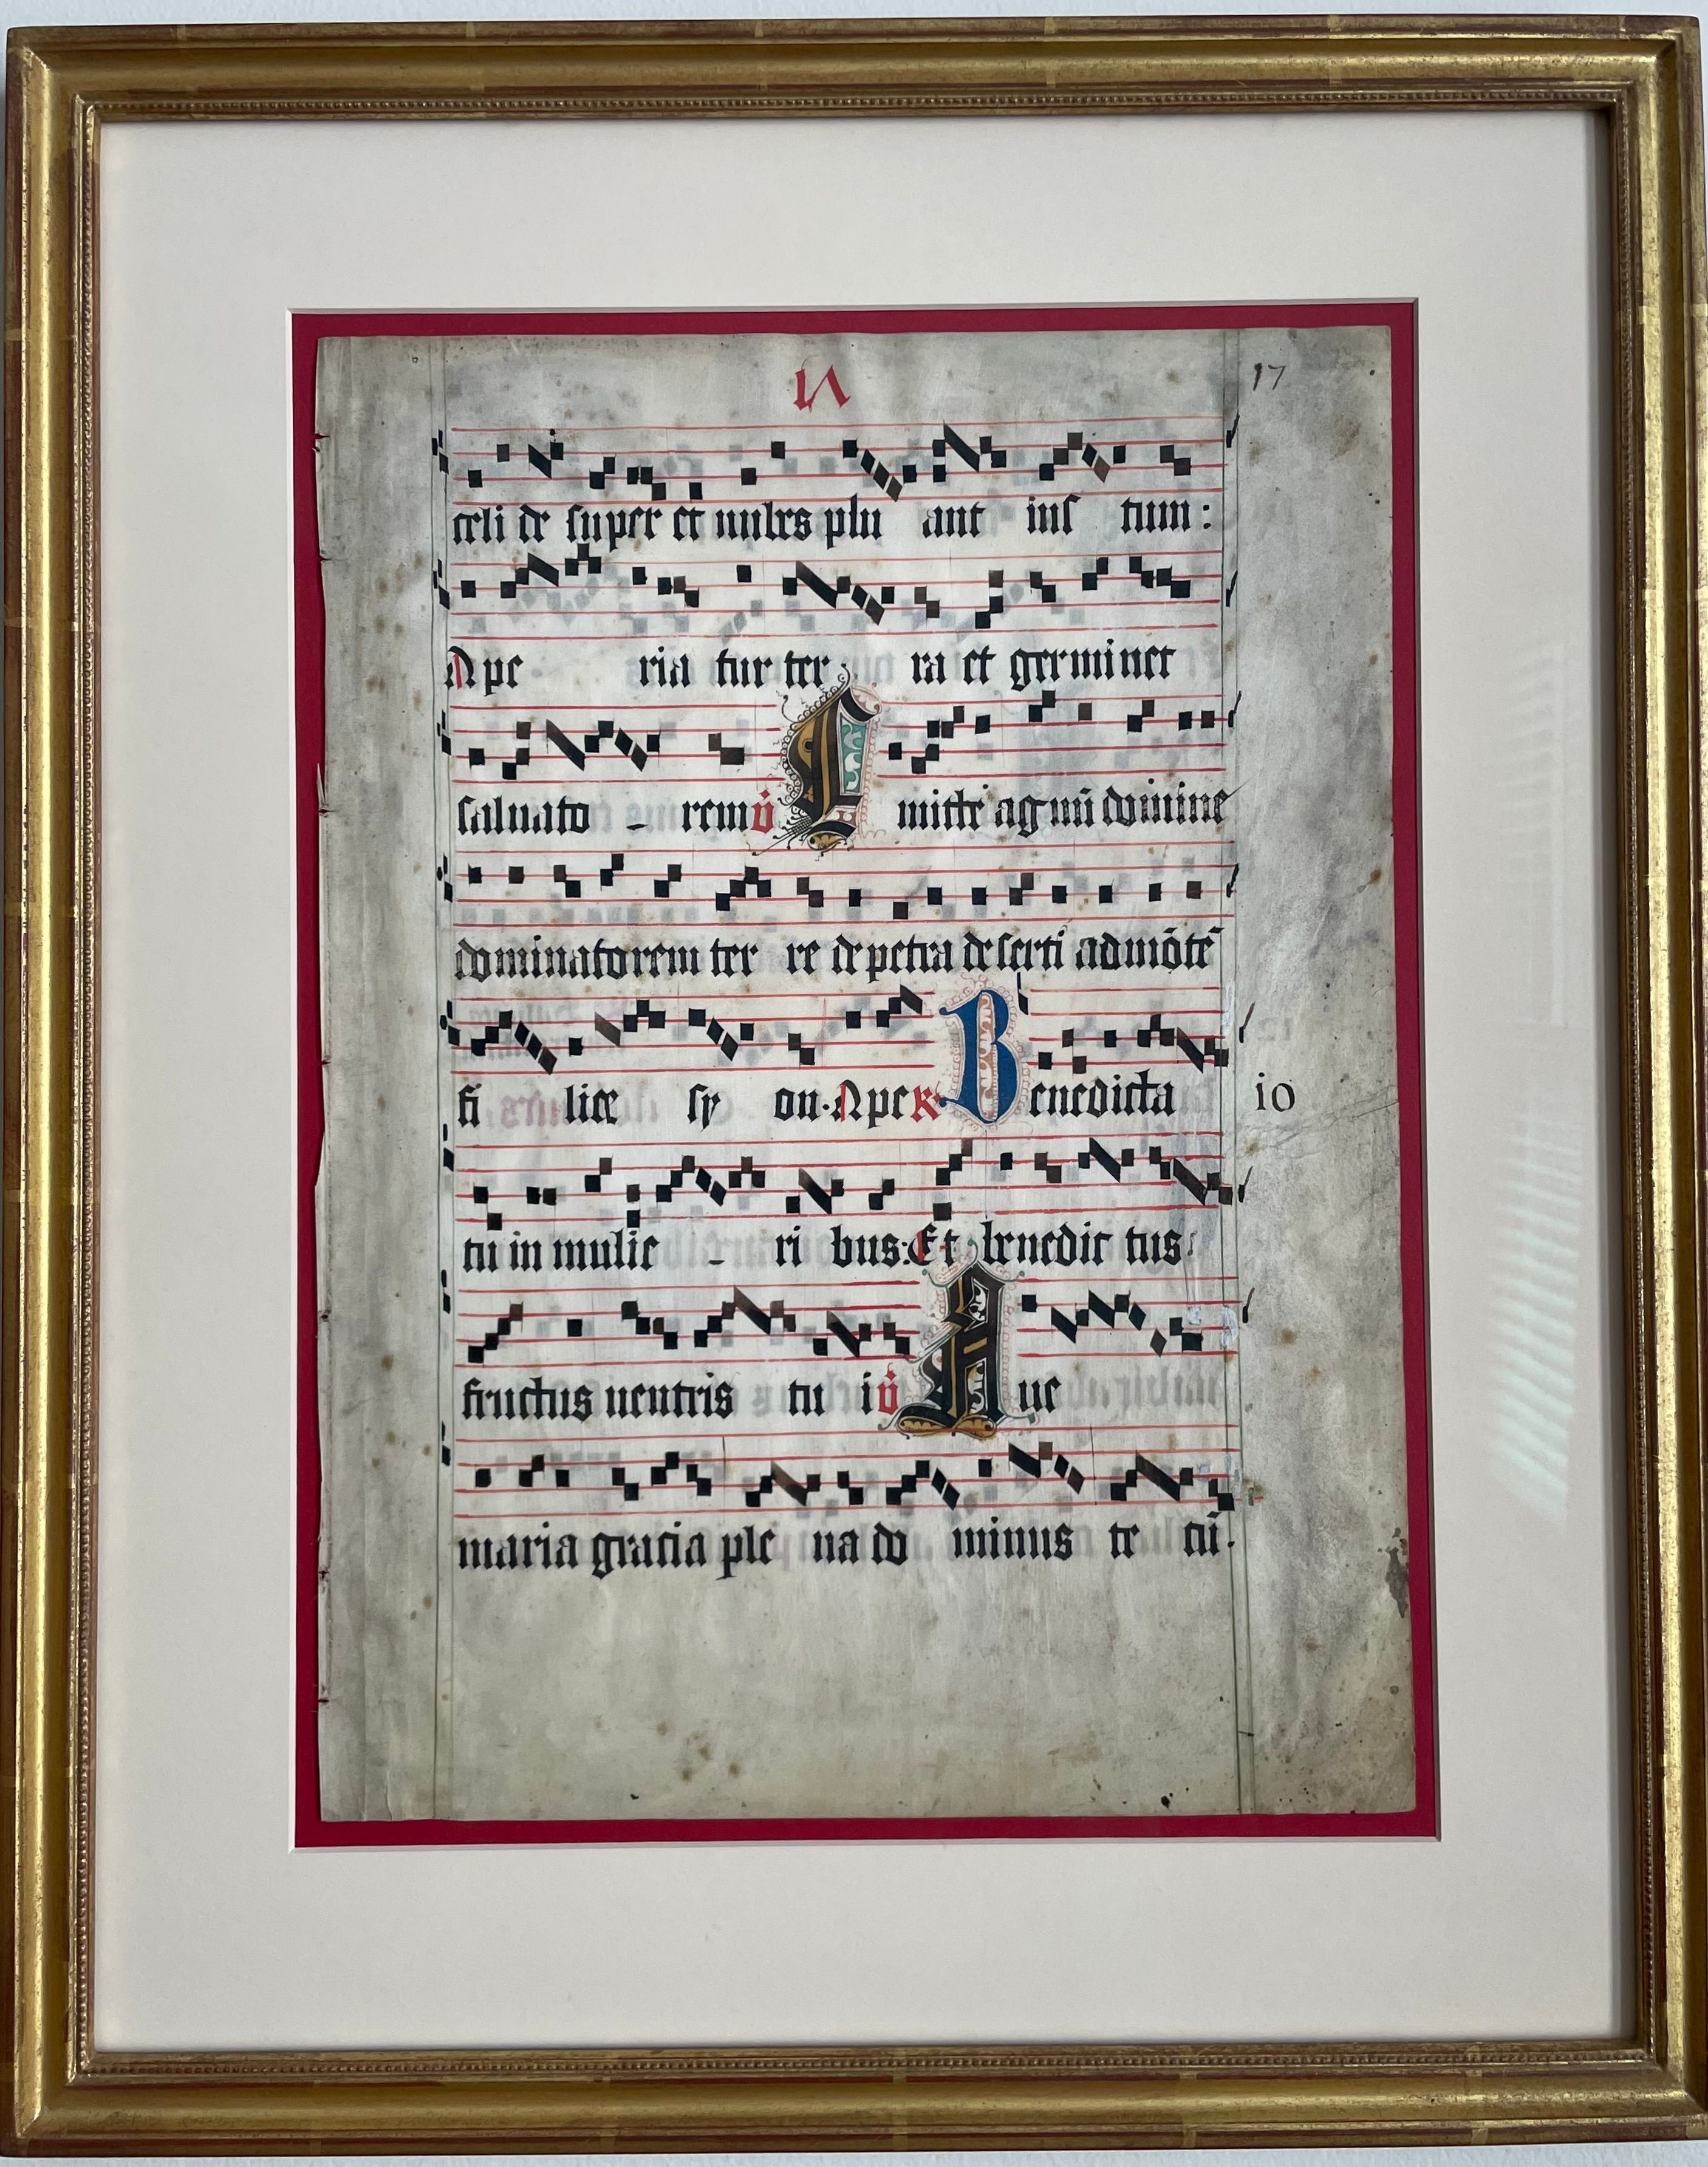 17
celi de super et nubes plu ant ius tum:
Ape ria tur ter ra et germinet
saluato - rem v̇ E mitte agnū domine
dominatorem ter re de petra deserti ad mōtē
fi lie sy on. Ape ℟ Benedicta
10
tu in mulie - ri bus: Et benedic tus
fructus uentris tu i v̇ Aue
maria gracia ple na do minus te cū.